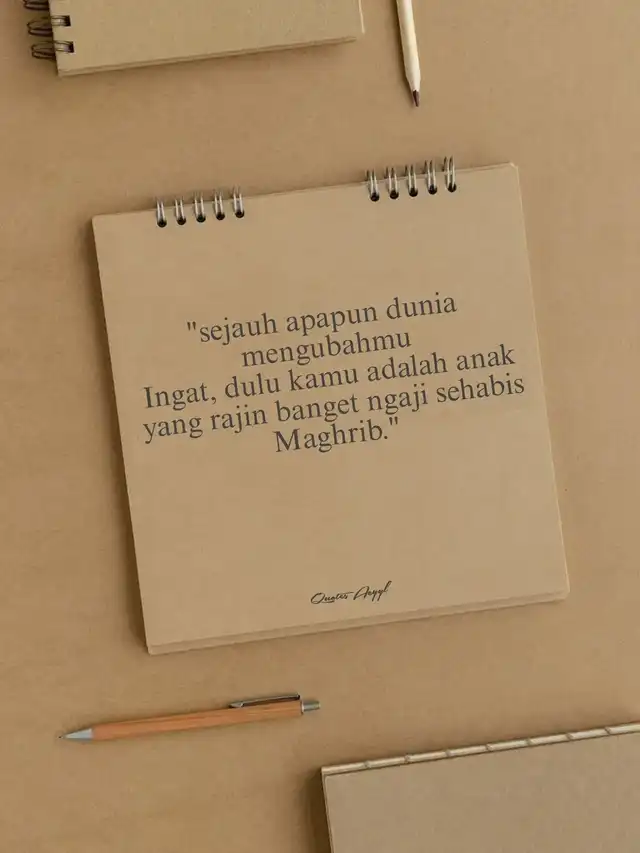 "sejauh apapun dunia
mengubahmu
Ingat, dulu kamu adalah anak
yang rajin banget ngaji sehabis
Maghrib."
Quotes Aryyl